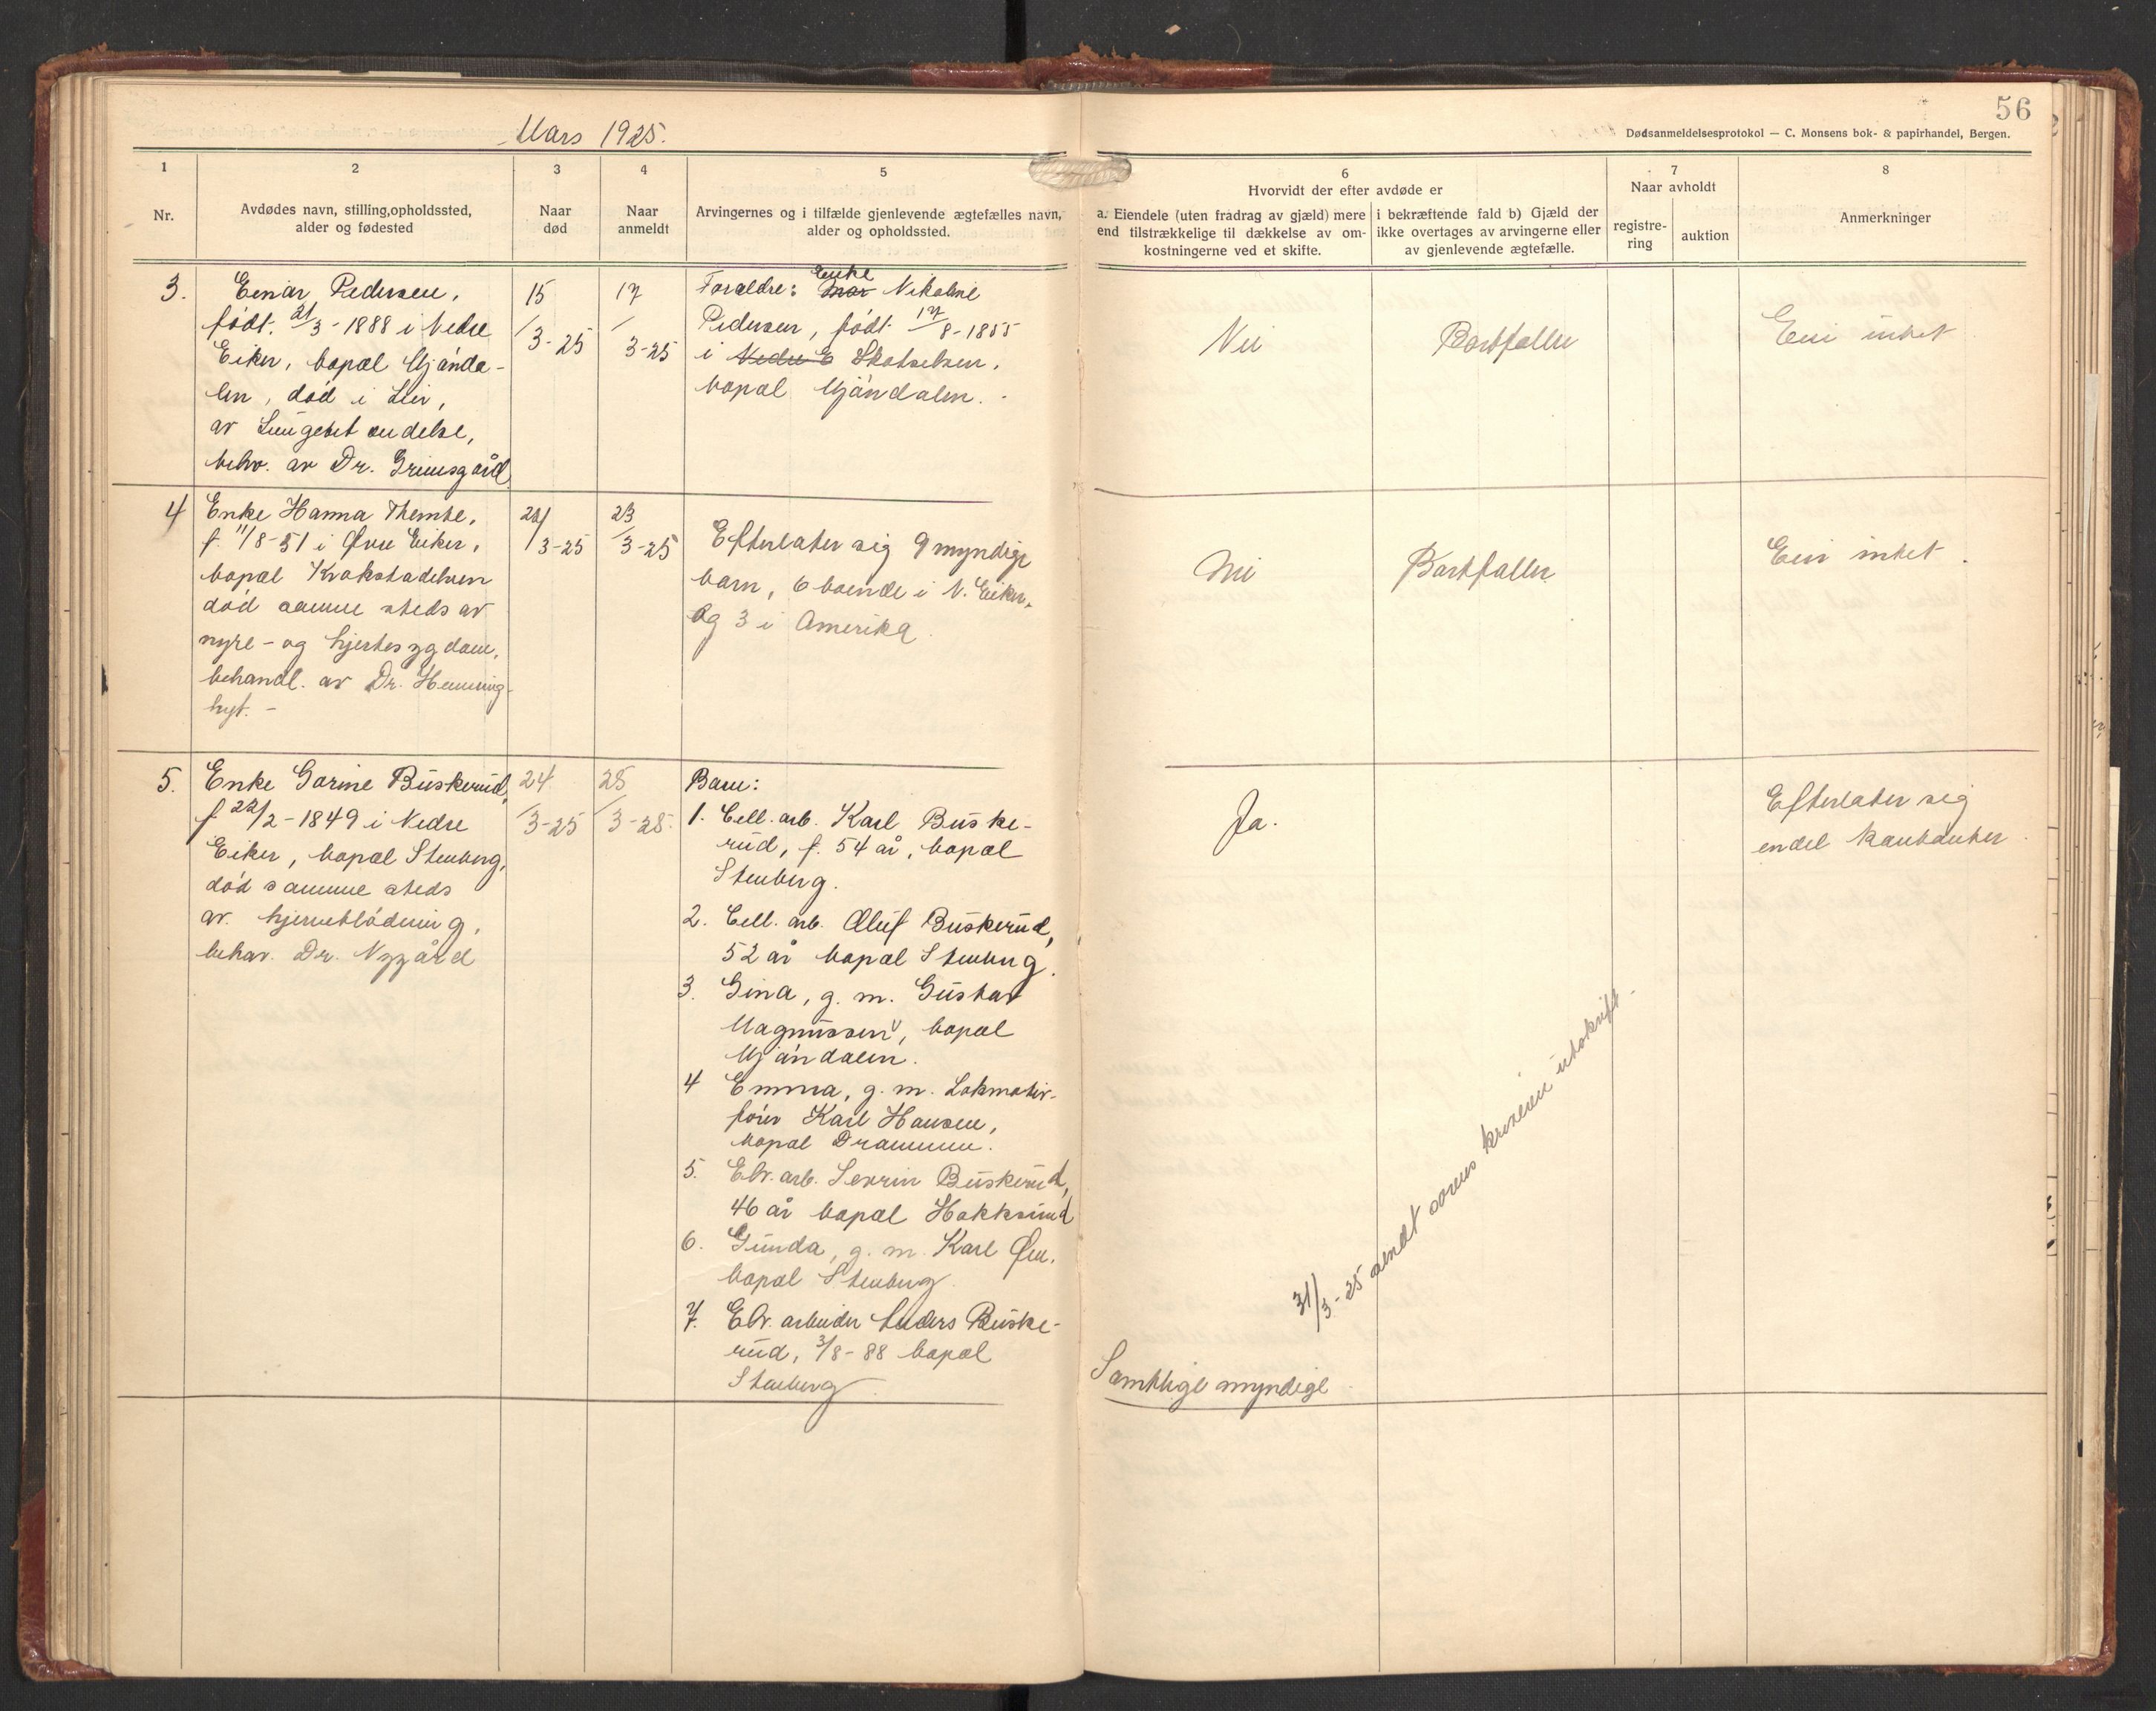 56
Mars 1925.
Dødsanmeldelsesprotokol — C. Monsens bok- & papirhandel, Bergen.
1
Nr.
2
Avdødes navn, stilling, opholdssted,
alder og fødested
3
Naar
død
4
Naar
anmeldt
5
Arvingernes og i tilfælde gjenlevende ægtefælles navn,
alder og opholdssted.
6
Hvorvidt der efter avdøde er
a. Eiendele (uten fradrag av gjæld) mere
end tilstrækkelige til dækkelse av om-
kostningerne ved et skifte.
i bekræftende fald b) Gjæld der
ikke overtages av arvingerne eller
av gjenlevende ægtefælle.
7
Naar avholdt
registre-
ring
auktion
8
Anmerkninger
3.
Einar Pedersen,
født. 21/3-1888 i Nedre
Eiker, bopæl Mjønda-
len, død i Lier,
av Lungebetændelse,
behv. av Dr. Grimsgård
15/3-25
17/3-25
Forældre: Enke Mor Nikoline
Pedersen, født 17/8-1855
i Nedre E Skotselven,
bopæl Mjøndalen.
Nei
Bortfaller
Eier intet
4
Enke Hanna Themte,
f. 11/8-51 i Øvre Eiker,
bopæl Krokstadelven
død samme steds av
nyre- og hjertesygdom,
behandl. av Dr. Henning-
hyt. -
21/3-25
23/3-25
Efterlater sig 9 myndige
barn, 6 boende i N. Eiker,
og 3 i Amerika.
Nei
Bortfaller
Eier intet.
5.
Enke Gorine Buskerud,
f 22/2-1849 i Nedre
Eiker, bopæl Stenberg,
død samme steds
av hjerneblødning,
behav. Dr. Nygård
24/3-25
25/3-25.
Barn:
1. Cell. arb. Karl Buske-
rud, f. 54 år, bopæl
Stenberg.
2. Cell. arb. Oluf Buskerud,
52 år bopæl Stenberg.
3. Gina, g. m. Gustav
Magnussen, bopæl
Mjøndalen.
4 Emma, g. m. Lokmotiv-
fører Karl Hansen,
bopæl Drammen.
5. Elv. arb. Sevrin Buskerud,
46 år bopæl Hokksund
6. Gunda, g. m. Karl Øen,
bopæl Stenberg.
7. Elv. arbeider Anders Buske-
rud, 3/8-88 bopæl
Stenberg.
Ja.
Efterlater sig
endel kontanter.
31/3-25 sendt sorenskriveren utskrift.
Samtlige myndige